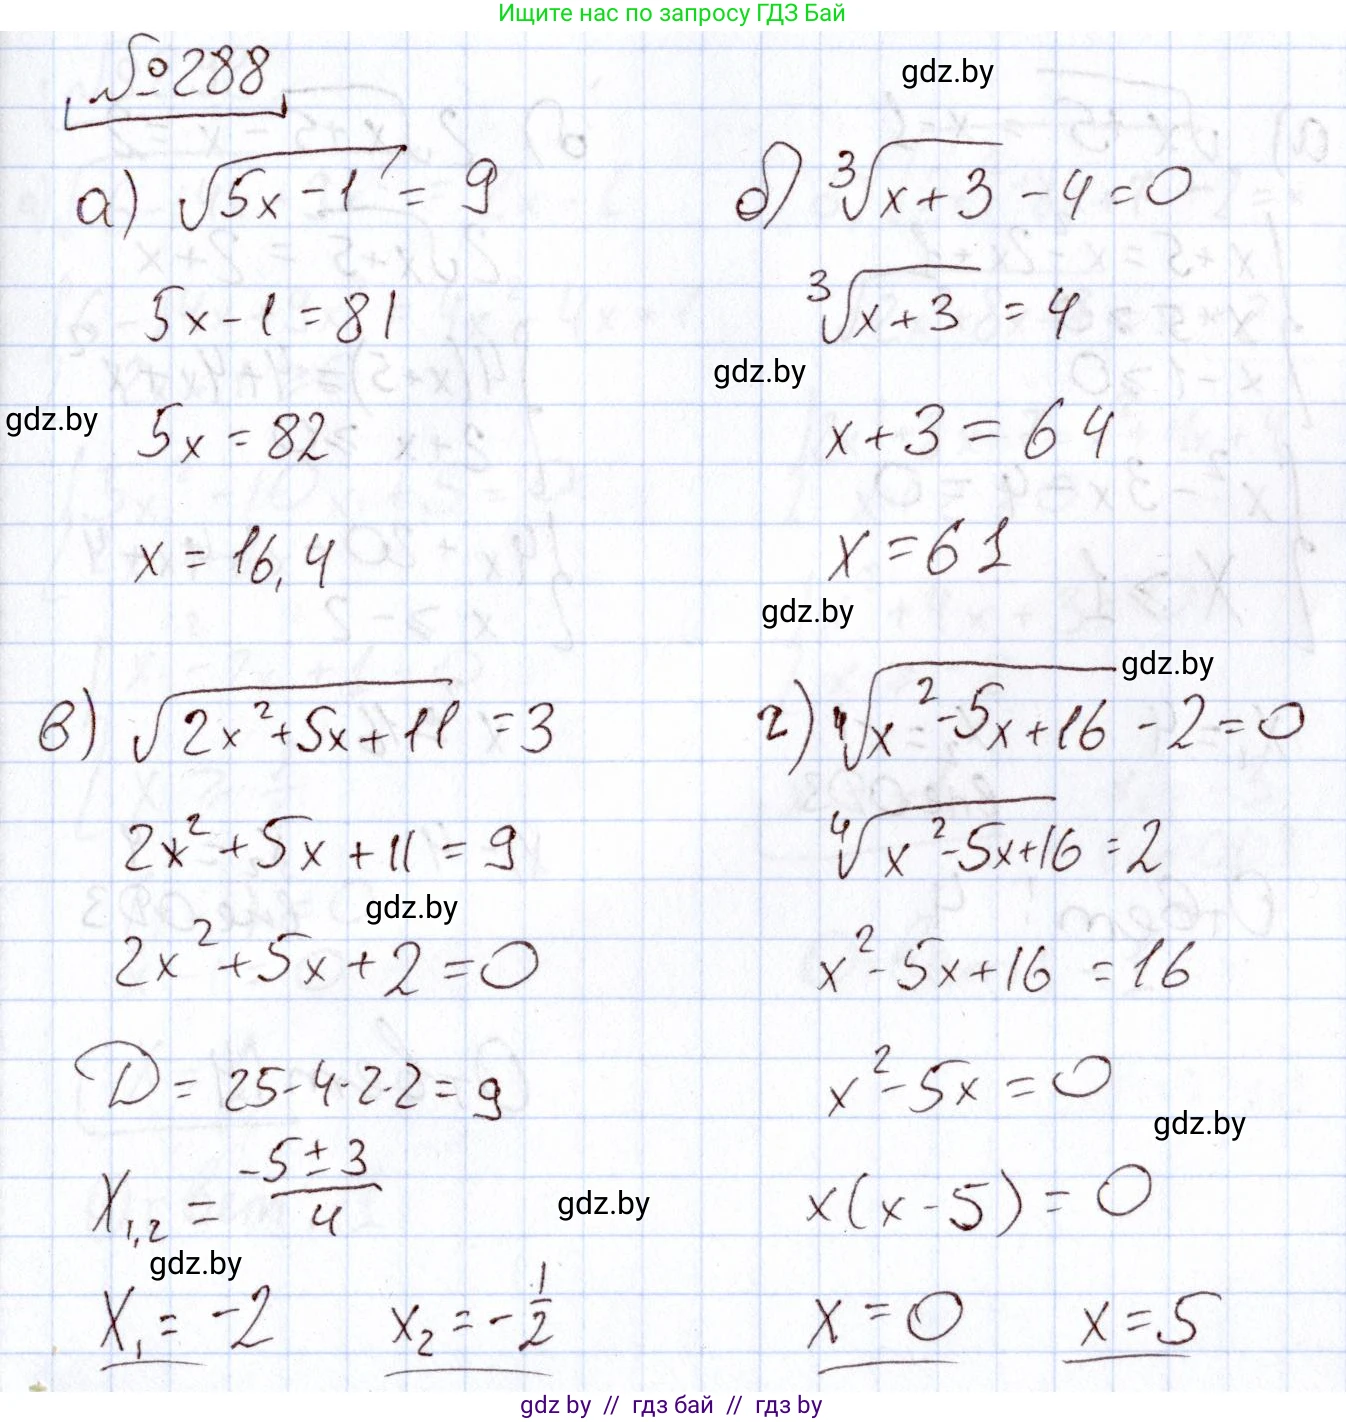 Ищите нас по запросу ГДЗ Бай
№288
gdz.by
а) √(5x-1) = 9
5x-1=81
gdz.by
5x=82
x=16,4
б) ³√(x+3) -4=0
³√(x+3) = 4
gdz.by
x+3=64
x=61
gdz.by
в) √(2x²+5x+11) =3
2x²+5x+11=9
gdz.by
2x²+5x+2=0
D=25-4·2·2=9
x₁,₂ = (-5±3)/4
gdz.by
gdz.by
x₁=-2 x₂=-1/2
gdz.by
г) ⁴√(x²-5x+16) -2=0
⁴√(x²-5x+16) =2
x²-5x+16=16
x²-5x=0
gdz.by
x(x-5)=0
x=0 x=5
gdz by // гдз бай // гдз by